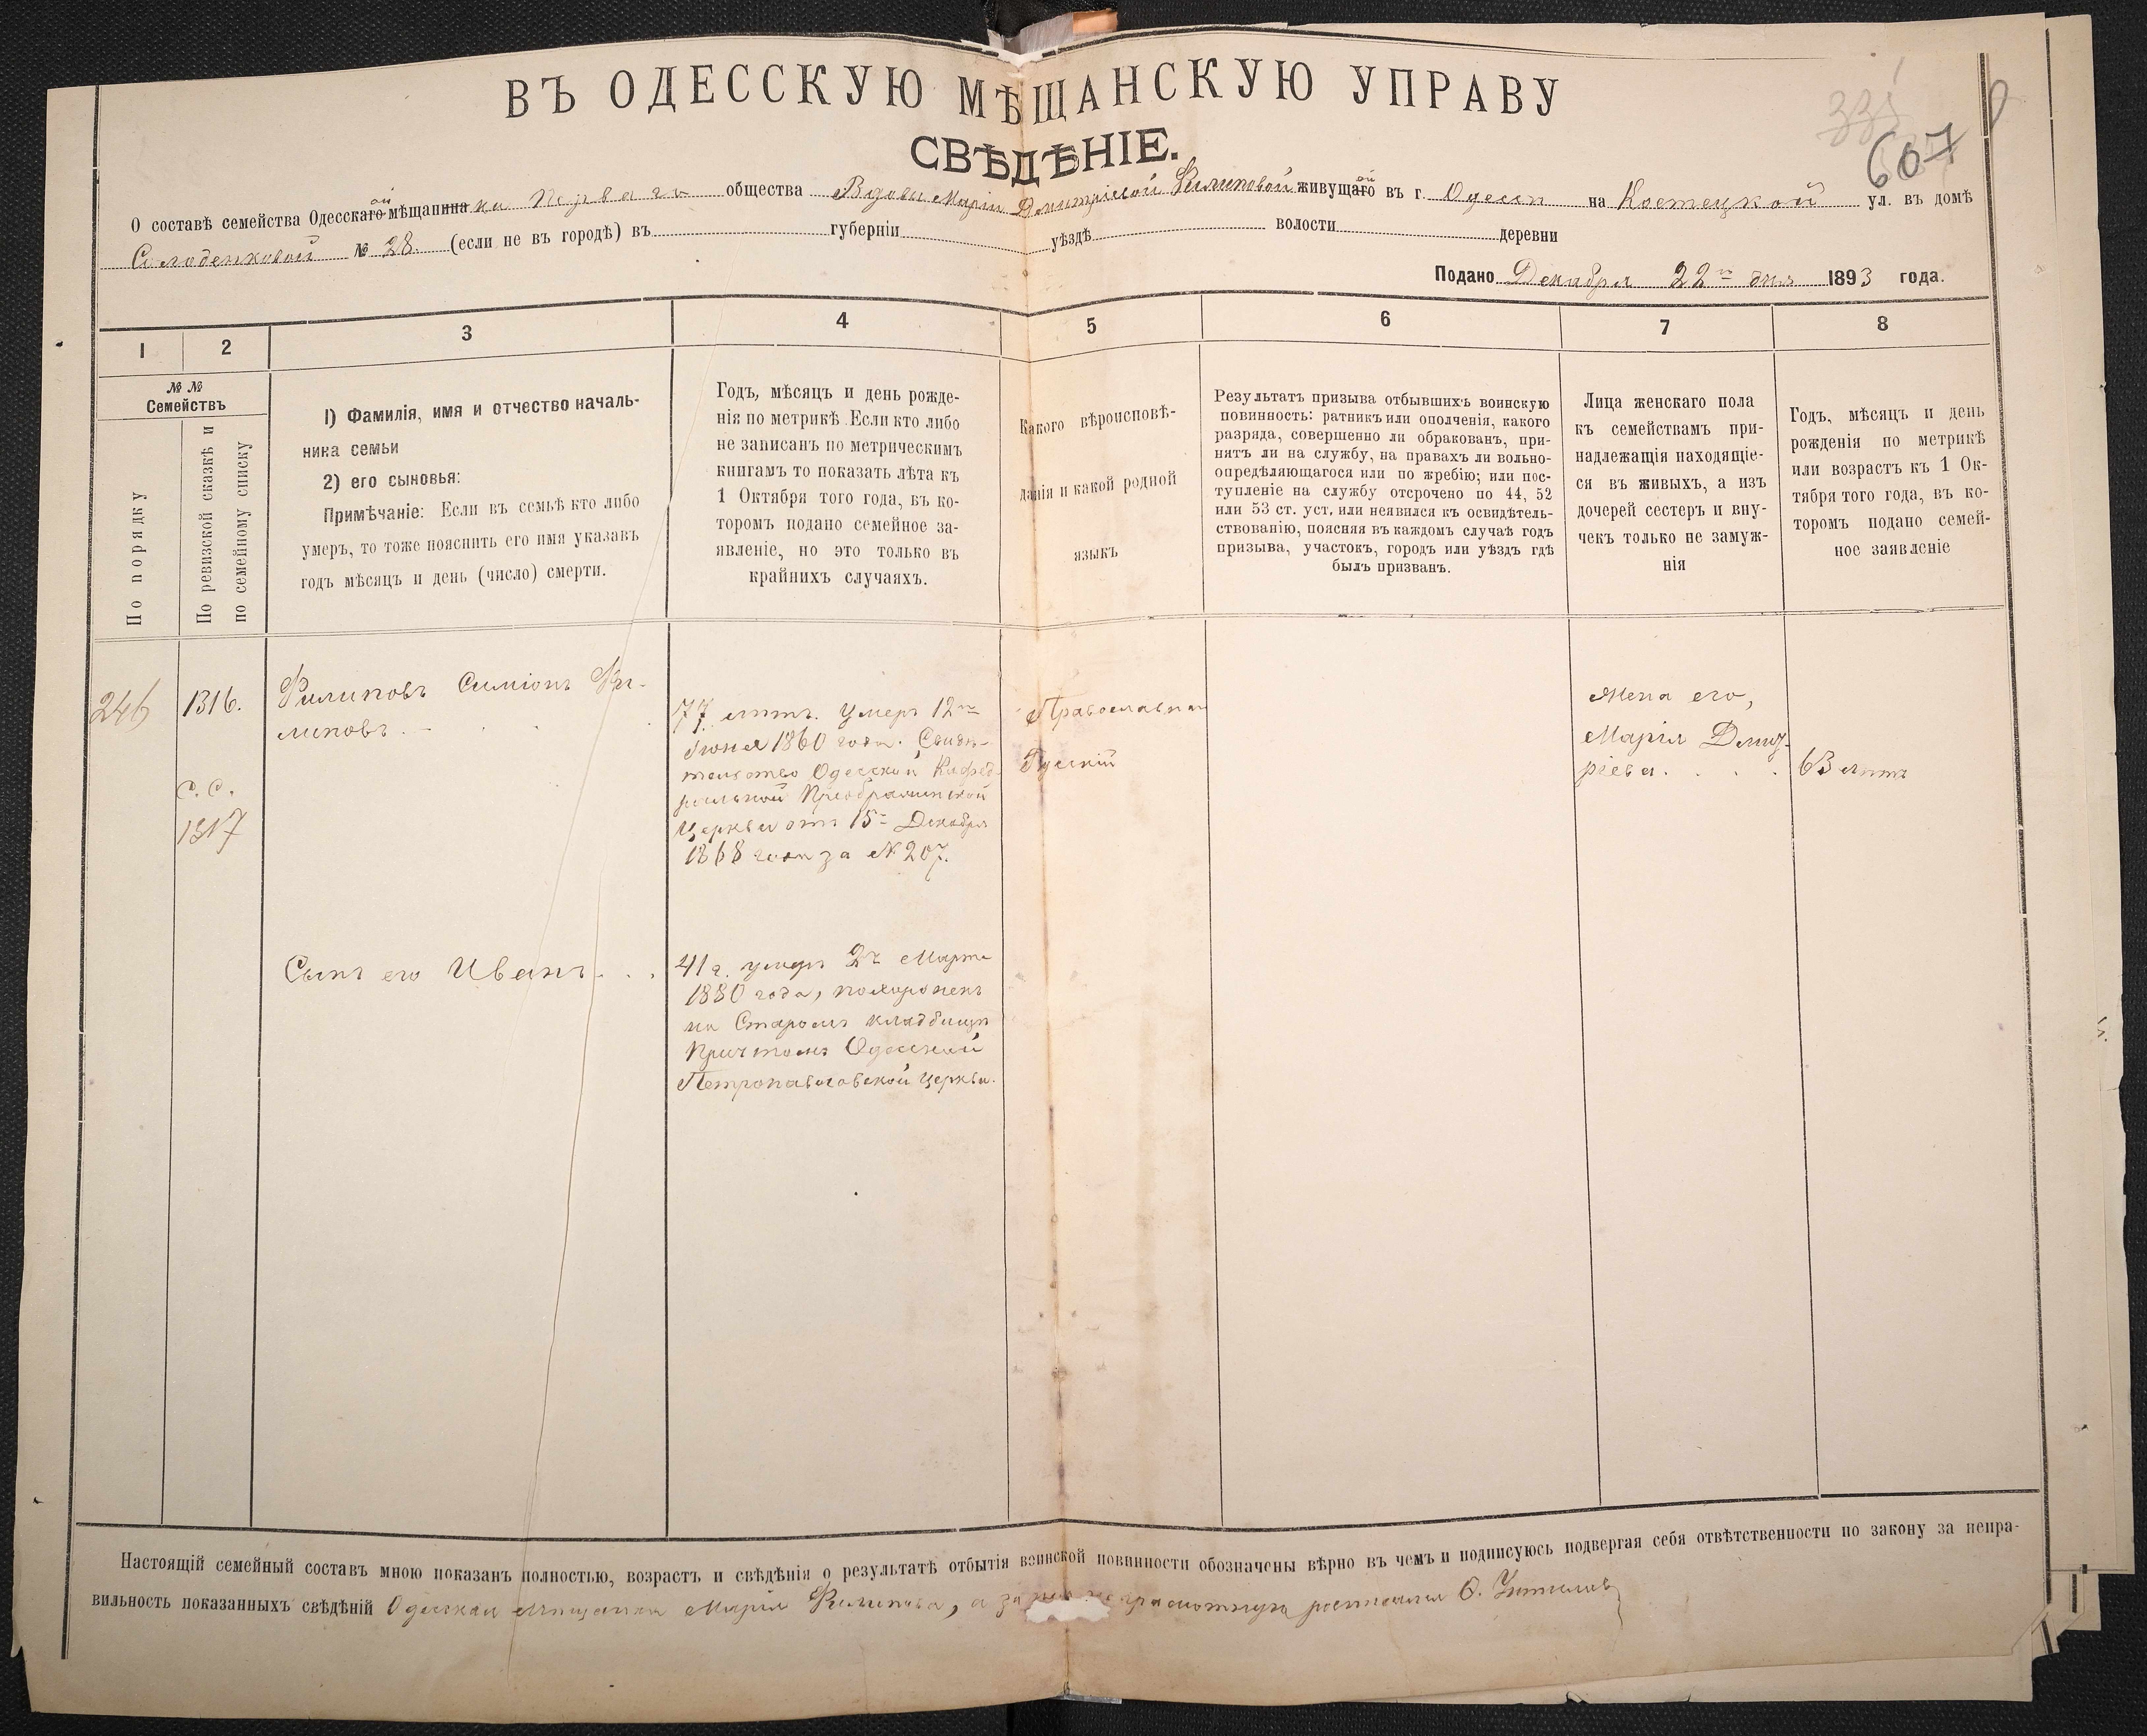 ВЪ ОДЕССКУЮ МѢЩАНСКУЮ УПРАВУ
СВѢДѢНІЕ.
335
607
О составѣ семейства Одесскаго ой мѣщанина ки Перваго общества Вдовы Маріи Дмитріевой Филиповой живущаго ой въ г. Одессѣ на Костецкой ул. въ домѣ
Солоденковой № 28. (если не въ городѣ) въ губерніи уѣздѣ волости деревни
Подано Декабря 22го дня 1893 года.
1 2 3 4 5 6 7 8
№ №
Семействъ
По порядку
По ревизской сказкѣ и
по семейному списку
1) Фамилія, имя и отчество началь-
ника семьи
2) его сыновья:
Примѣчаніе: Если въ семьѣ кто либо
умеръ, то тоже пояснить его имя указавъ
годъ мѣсяцъ и день (число) смерти.
Годъ, мѣсяцъ и день рожде-
нія по метрикѣ. Если кто либо
не записанъ по метрическимъ
книгамъ то показать лѣта къ
1 Октября того года, въ ко-
торомъ подано семейное за-
явленіе, но это только въ
крайнихъ случаяхъ.
Какого вѣроисповѣ-
данія и какой родной
языкъ
Результатъ призыва отбывшихъ воинскую
повинность: ратникъ или ополченія, какого
разряда, совершенно ли обракованъ, при-
нятъ ли на службу, на правахъ ли вольно-
опредѣляющагося или по жребію; или пос-
тупленіе на службу отсрочено по 44, 52
или 53 ст. уст. или неявился къ освидѣтель-
ствованію, поясняя въ каждомъ случаѣ годъ
призыва, участокъ, городъ или уѣздъ гдѣ
былъ призванъ.
Лица женскаго пола
къ семействамъ при-
надлежащія находящіе-
ся въ живыхъ, а изъ
дочерей сестеръ и вну-
чекъ только не замуж-
нія
Годъ, мѣсяцъ и день
рожденія по метрикѣ
или возрастъ къ 1 Ок-
тября того года, въ ко-
торомъ подано семей-
ное заявленіе
246
1316.
с. с.
1317
Филиповъ Симіонъ Фи-
липовъ.
77. лѣтъ. Умеръ 12го
Іюня 1860 года. Свидѣ-
тельство Одесской Кафед-
ральной Преображенской
Церкви отъ 15го Декабря
1868 года за № 207.
Православная
Русскій
Жена его,
Марія Дмит-
ріева. . . .
63 лѣтъ
Сынъ его Иванъ. . .
41 г. умеръ 2г Марта
1880 года, похороненъ
на Старомъ кладбищѣ
Причтомъ Одесской
Петропавловской церкви.
Настоящій семейный составъ мною показанъ полностью, возрастъ и свѣдѣнія о результатѣ отбытія воинской повинности обозначены вѣрно въ чемъ и подписуюсь подвергая себя отвѣтственности по закону за непра-
вильность показанныхъ свѣдѣній Одесская мѣщанка Марія Филипова, а за нее неграмотную росписался